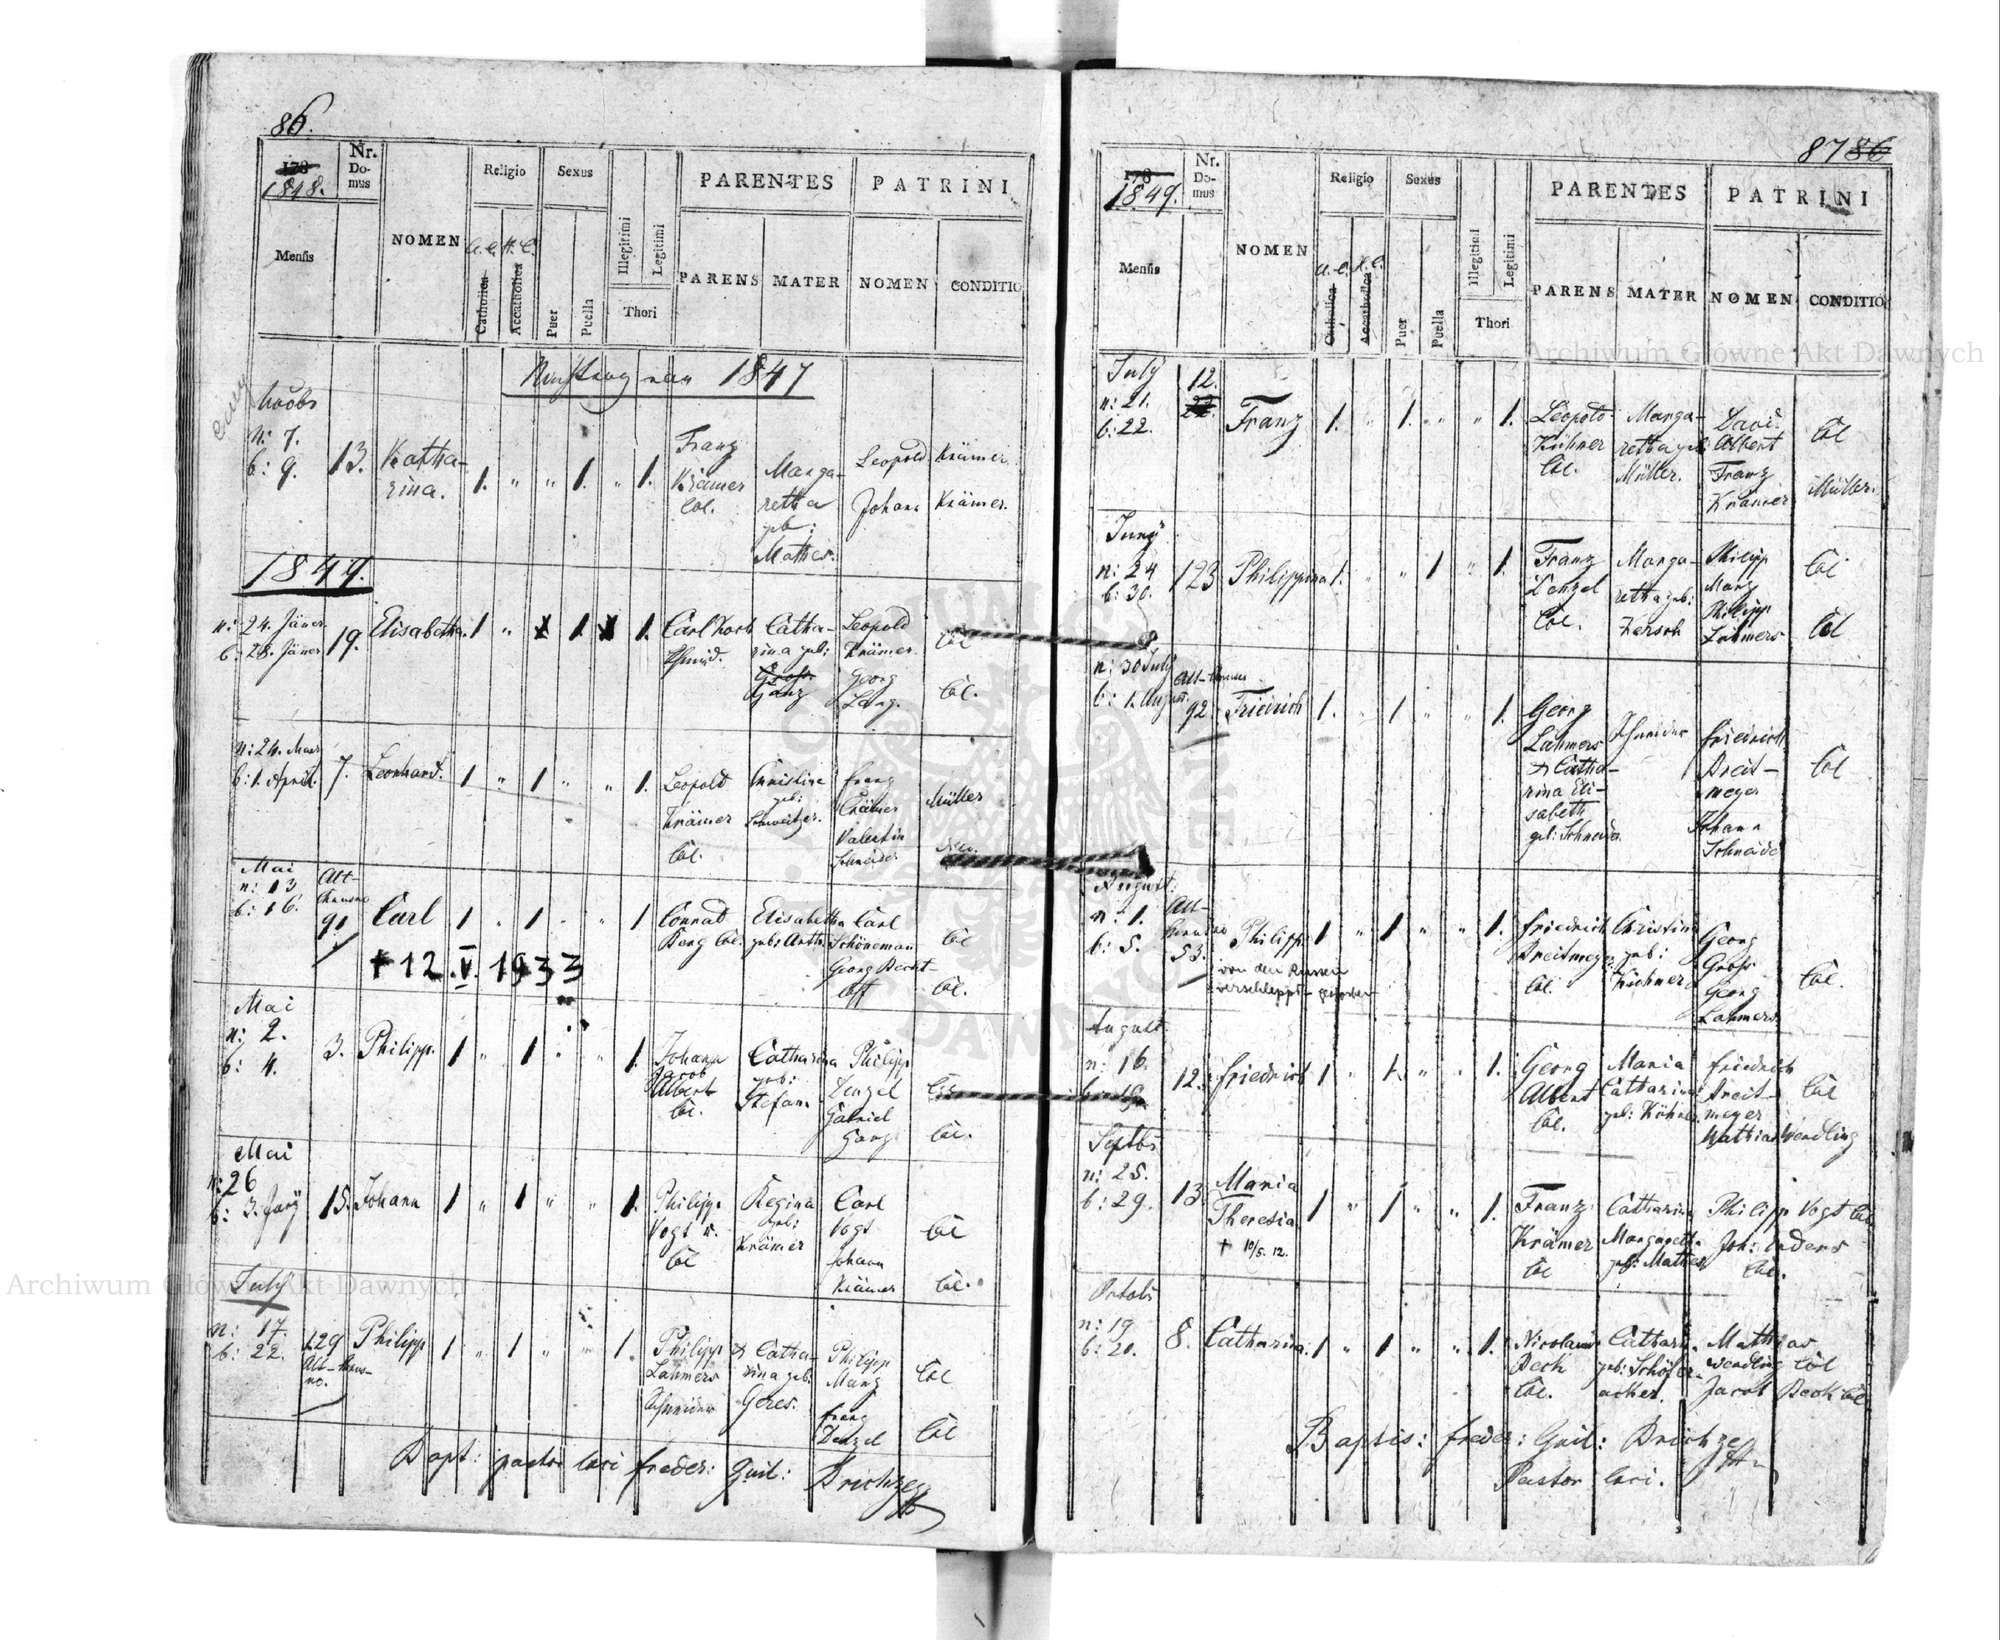 86.
178
1848.
Nr.
Do-
mus
Mensis
NOMEN
Religio
A. C. H. C.
Catholica
Accatholica
Sexus
Puer
Puella
Illegitimi
Legitimi
Thori
PARENTES
PARENS
MATER
PATRINI
NOMEN
CONDITIO
1847
n: 7.
b: 9.
13.
Katha-
rina.
1. " " 1. " 1.
Franz
Krämer
Col.
Marga-
retta
geb:
Mathes.
Leopold Krämer.
Johann Krämer.
1849.
n: 24. Jäner
b: 28. Jäner
19.
Elisabetha.
1 " 1. 1.
Carl Koch
Schmid.
Catha-
rina geb:
Ganz
Leopold
Krämer.
Georg
Lang.
Col
Col.
n: 24. Maer
b: 1. April.
7.
Leonhard.
1 " 1 " " 1.
Leopold
Krämer
Col.
Christine
geb:
Schweitzer.
Franz
Krämer
Valentin
Schneider
Müller
Mai
n: 13
b: 16.
Alt-
91
Carl
1 " 1 " " 1
+ 12. V. 1933
Conrad
Berg Col.
Elisabetha
geb:
Carl
Schöneman
Georg Becht-
loff
Col
Col.
Mai
n: 2.
b: 4.
3.
Philipp.
1 " 1 " " 1.
Johann
Jacob
Albert
Col.
Catharina
geb:
Stefan.
Philipp
Denzel
Gabriel
Ganz
Col.
Col.
Mai
n: 26
b: 3. Juny
15.
Johann
1 " 1 " " 1.
Philipp
Vogt
Col
Regina
geb:
Krämer
Carl
Vogt
Johann
Krämer
Col
Col.
July
n: 17.
b: 22.
129
Philipp
1 " 1 " " 1.
Philipp
Lahmers
Schneider
& Catha-
rina geb:
Geres.
Philipp
Mang
Franz
Denzel
Col
Col
Bapt: pastor loci Freder: Guil:
8786
178
1849.
Nr.
Do-
mus
Mensis
NOMEN
Religio
A. C. H. C.
Catholica
Accatholica
Sexus
Puer
Puella
Illegitimi
Legitimi
Thori
PARENTES
PARENS
MATER
PATRINI
NOMEN
CONDITIO
July
n: 21.
b: 22.
12.
Franz
1. " 1. " " 1.
Leopold
Kühner
Col.
Marga-
retta geb:
Müller.
David
Albert
Franz
Krämer
Col
Müller.
Juny
n: 24
b: 30.
123
Philippina
1. " " 1 " 1.
Franz
Denzel
Col.
Marga-
retta geb:
Philipp
Mang
Philipp
Lahmers
Col
Col
n: 30 July
b: 1. August.
92
Friedrich
1. " 1 " " 1.
Georg
Lahmers
& Catha-
rina Eli-
sabeth
geb: Schneider
Schneider
Friedrich
Dreit-
meyer
Johann
Schneider
Col
August:
n: 1.
b: 5.
Alt-
53.
Philipp
1 " 1 " " 1.
von den Russen
verschleppt - gestorben
Friedrich
Dreitmeyer
Col.
Christina
geb:
Kühner
Georg
Gross
Georg
Lahmers.
Col.
August
n: 16.
12.
Friedrich
1 " 1. " " 1.
Georg
Albert
Col.
Maria
Catharina
geb: Kühner
Friedrich
Dreit-
meyer
Mathias Wendling
Col
Septbr
n: 25.
b: 29.
13.
Maria
Theresia
+ 10/5. 12.
1 " 1 " " 1.
Franz
Krämer
Col
Catharina
Margareth
geb: Mathes
Philipp Vogt Col.
Joh:
Col.
Octobr
n: 19
b: 20.
8.
Catharina:
1 " 1 " " 1.
Nicolaus
Bech
Col.
Cathari-
geb: Schöfer-
acker.
Mathias
Wendling Col
Jacob Bech Col.
Baptis: Freder: Guil:
Pastor loci.
Archiwum Główne Akt Dawnych
Archiwum Główne Akt Dawnych